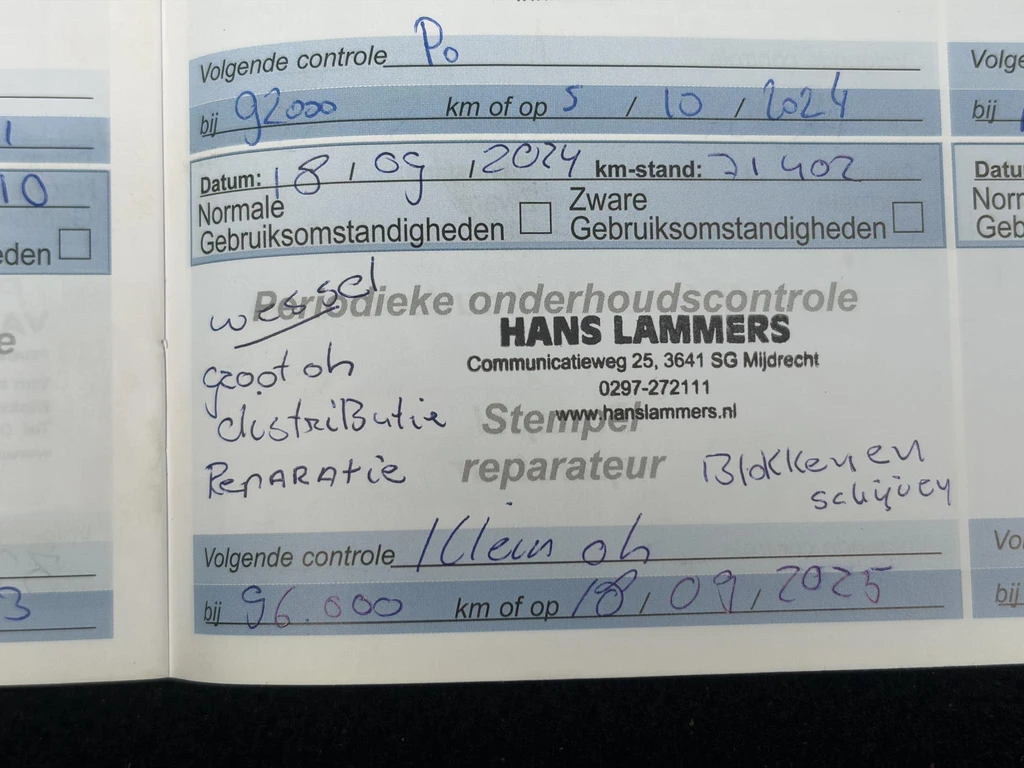 Volgende controle Po
bij 92000 km of op 5 / 10 / 2024
Datum: 18 / 09 / 2024 km-stand: 71402
Normale Gebruiksomstandigheden
Zware Gebruiksomstandigheden
Periodieke onderhoudscontrole
wessel
HANS LAMMERS
Communicatieweg 25, 3641 SG Mijdrecht
0297-272111
www.hanslammers.nl
groot oh
distributie
Stempel
reparateur
Reparatie
Blokken en
schijven
Volgende controle Klein oh
bij 96.000 km of op 18 / 09 / 2025
10
eden
e
3
Volge
bij
Datu
Norr
Geb
Vo
bij